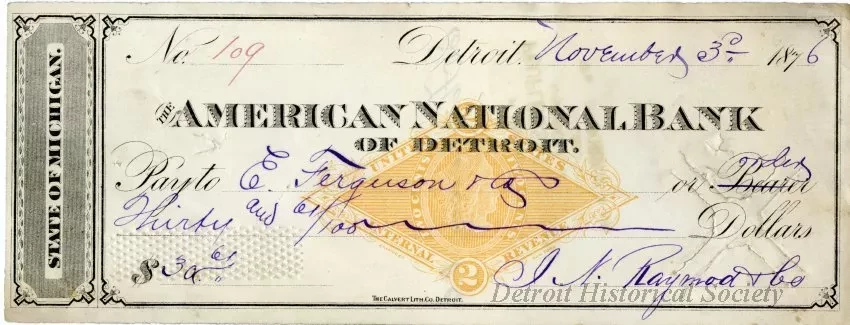 No. 109 Detroit. November 3d 1876
THE AMERICAN NATIONAL BANK
OF DETROIT.
Pay to E. Ferguson & Co or Bearer order
Thirty and 61/100 Dollars
$ 30 61
J. N. Raymod & Co
STATE OF MICHIGAN.
UNITED STATES
INTERNAL REVENUE
2
THE CALVERT LITH. CO. DETROIT.
Detroit Historical Society